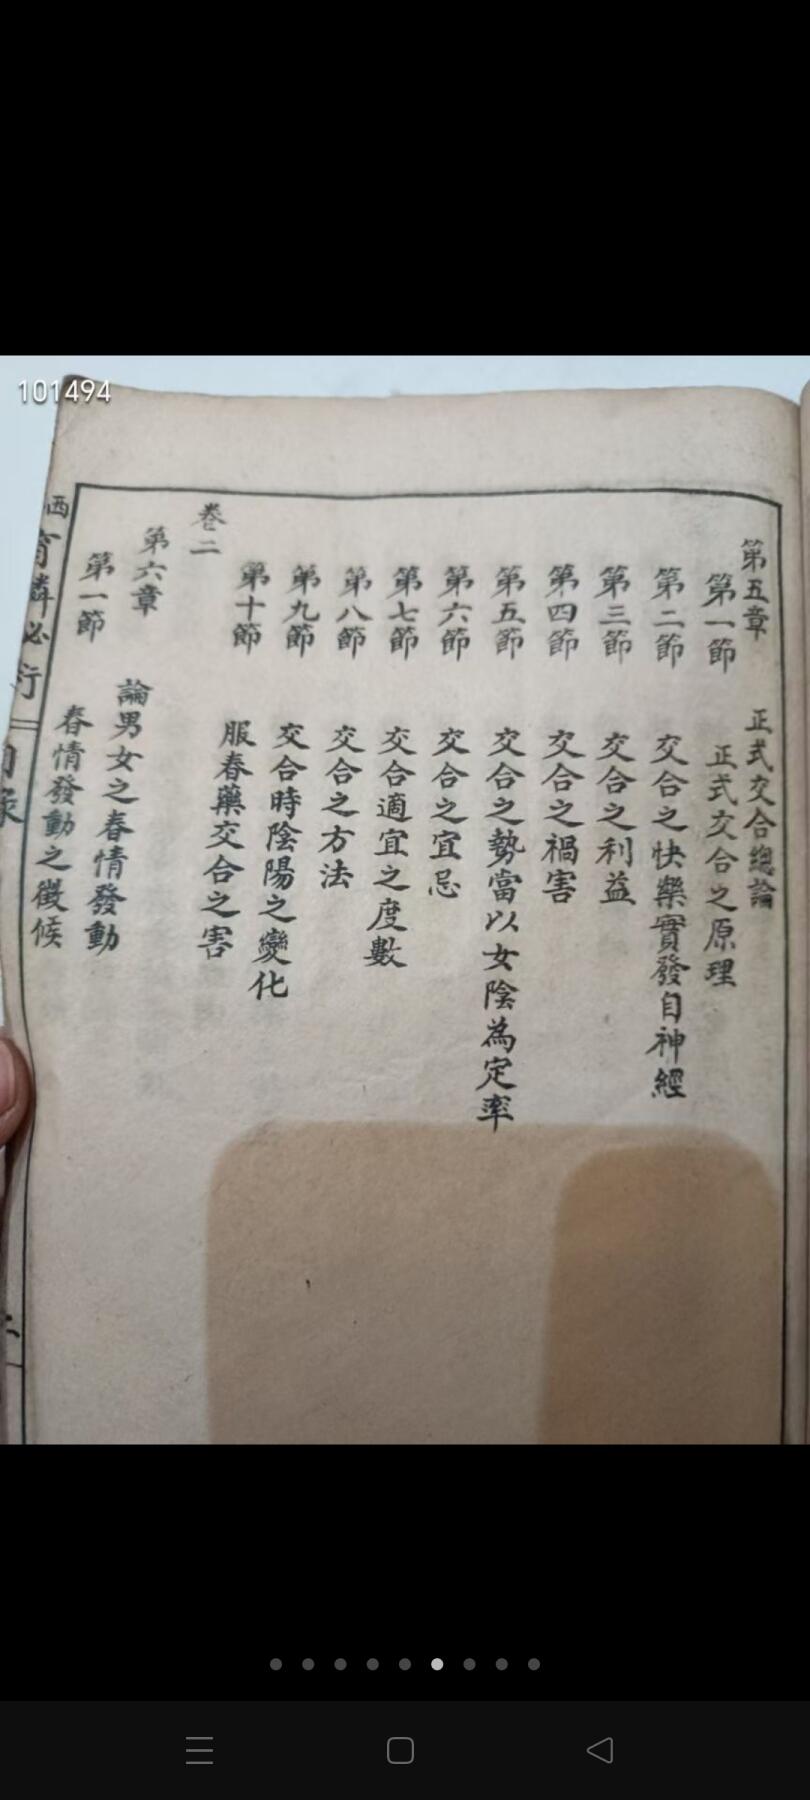 101494
第五章 正式交合總論
第一節 正式交合之原理
第二節 交合之快樂實發自神經
第三節 交合之利益
第四節 交合之禍害
第五節 交合之勢當以女陰為定率
第六節 交合之宜忌
第七節 交合適宜之度數
第八節 交合之方法
第九節 交合時陰陽之變化
第十節 服春藥交合之害
卷二
第六章 論男女之春情發動
第一節 春情發動之徵候